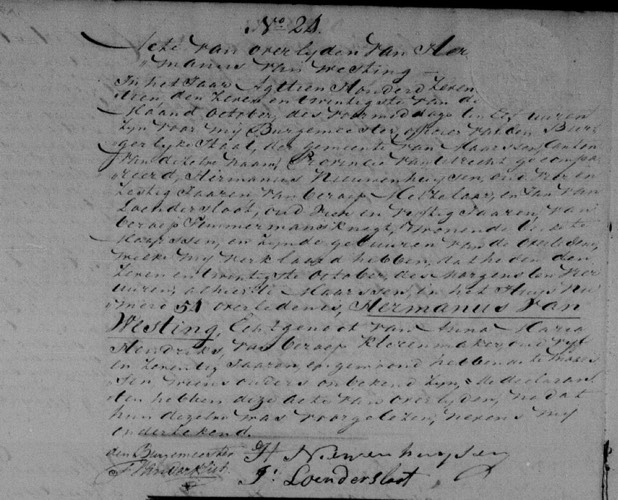 No 24.
Acte van overlyden van Her
manus van Westing
In het Jaar Agttien Honderd Zeven
tien, den Zeven en twintigste van de
Maand October, des voormiddags ten Elf uuren
Zyn voor my Burgemeester, officier van den Bur
gerlyke Staat, der gemeente van Maarssen, canton
van dezelve naam, Provincie van Utrecht gecompa
reerd, Hermanus Nieuwenhuysen, oud vier en
Zestig Jaaren van beroep Metzelaar, en Jan van
Loenderslott, oud een en Jaaren, van
beroep Timmermans knegt, woonende beide te
Maarssen, en zynde gebuuren van de overledene,
welke my verklaard hebben, dat heden den
Zeven en twintigste October, des morgens ten vier
uuren, alhier te Maarssen, in het Huys Nu
mero 51 overleden is, Hermanus van
Westing, Echtgenoot van Anna Maria
Hendriks, van beroep Kleermaker, oud vyf
en Zeventig Jaaren, gewoond hebbende te
wiens ouders onbekend zyn, en de declaran
ten hebben deze acte van overlyden, na dat
hun dezelve was voorgelezen, nevens my
onderteekend.
den Burgemeester H Nieuwenhuysen
J: Loendersloot